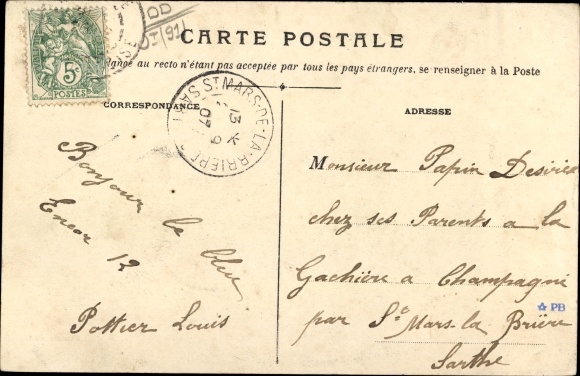 CARTE POSTALE
au recto n'étant pas acceptée par tous les pays étrangers, se renseigner à la Poste
CORRESPONDANCE
ADRESSE
5c
POSTES
ST MARS-DE-LA-BRIÈRE
13
07
Bonjour le bleu
Encor 12
Pottier Louis
Monsieur Papin Desirée
chez ses Parents a la
Gachière a Champagné
par St Mars-la Brière
Sarthe
PB